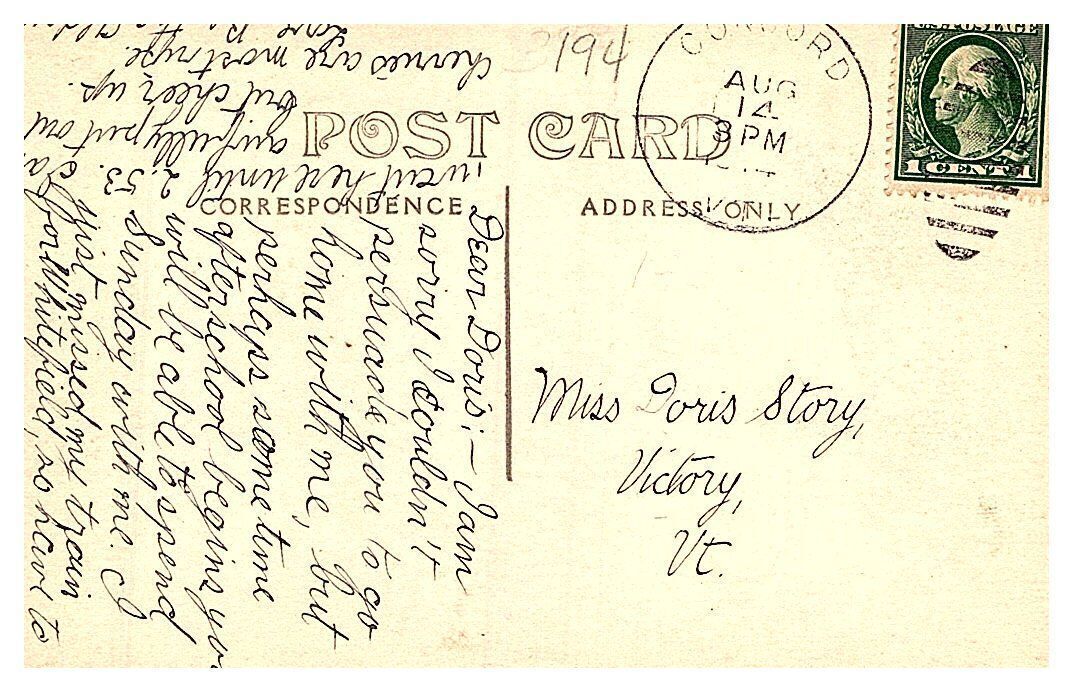 3194
CONCORD
AUG
14
3 PM
VT.
U.S. POSTAGE
1 CENT 1
POST CARD
CORRESPONDENCE
ADDRESS ONLY
Dear Doris:- I am
sorry I couldn't
persuade you to go
home with me, but
perhaps some time
after school begins you
will be able to spend
Sunday with me. I
just missed my train
for Whitefield, so have to
wait here until
2.53.
awfully put out
but cheer up.
cherries are most ripe.
Love
Miss Doris Story,
Victory,
Vt.